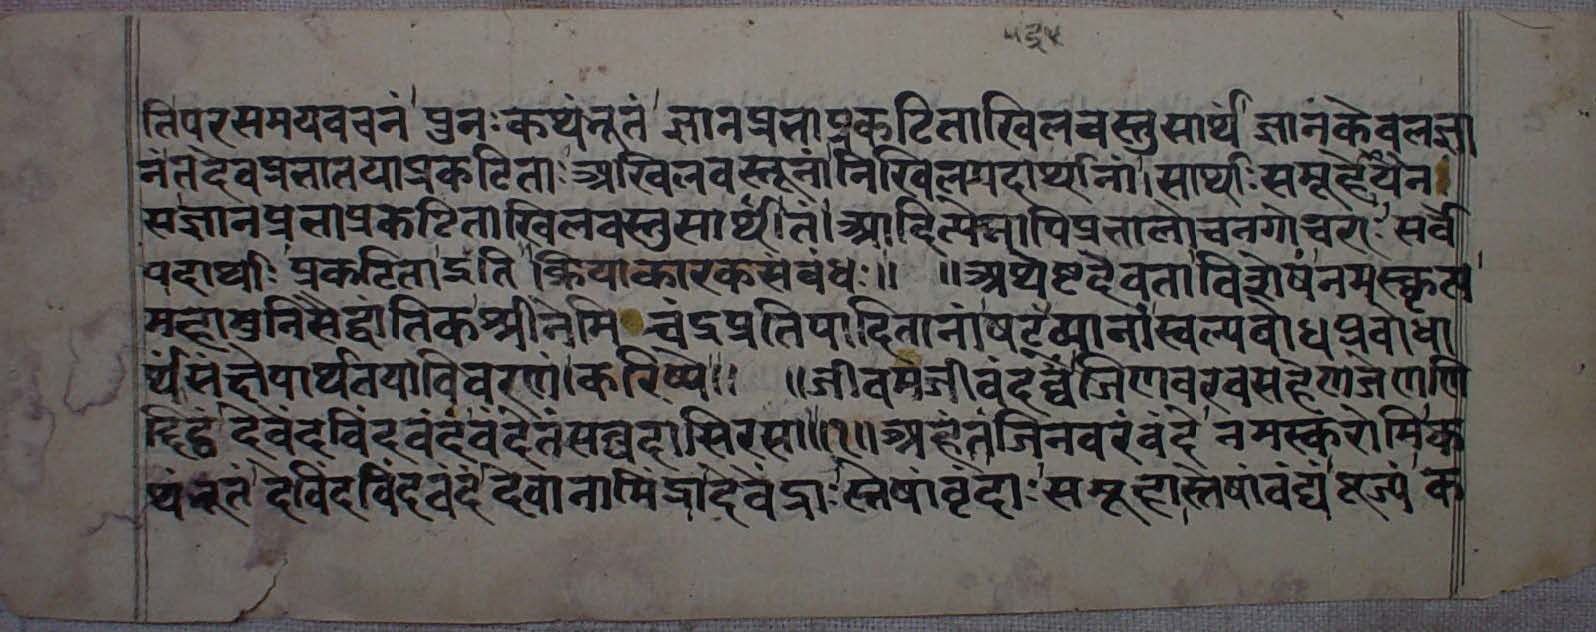 तिपरसमयवचनं पुनः कथंभूतं ज्ञानप्रभाप्रकटिताखिलवस्तुसार्थं ज्ञानंकेवलज्ञा
नंतदेवप्रभातयाप्रकटिताः अखिलवस्तूनांनिखिलपदार्थानां सार्थाः समूहैर्येन
सज्ञानप्रभाप्रकटिताखिलवस्तुसार्थीतं। आदित्येनापिप्रभालोचनगोचराः सर्वे
पदार्थाः प्रकटिता इति क्रियाकारकसंबंधः॥ ॥अथेष्टदेवताविशेषंनमस्कृत्य
महामुनिसैद्धांतिकश्रीनेमिचंद्रप्रतिपादितानां षट्द्रव्यानांस्वल्पबोधप्रबोधा
र्थंसंक्षेपार्थतयाविवरणं।करिष्ये॥ ॥जीवमजीवंदव्वंजिणवरवसहेणजेणणि
द्दिट्ठं देवंदविंदवंदंवंदेतंसव्वदासिरसा॥१॥अर्हंतंजिनवरंवंदे नमस्करोमिक
थंभूतं देविंदविंदवंदं देवानामिंद्रादेवंद्राः स्तेषांवृंदाः समूहास्तेषांवंद्यं पूज्यं क